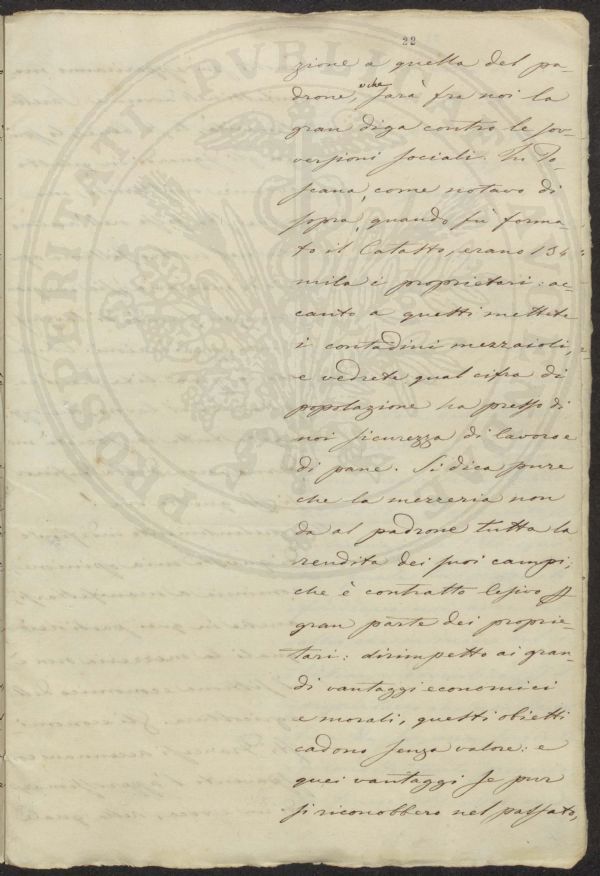 22
zione a quella del pa-
drone, e che sarà fra noi la
gran diga contro le sov-
versioni sociali. In To-
scana, come notavo di
sopra, quando fù forma-
to il Catasto, erano 134
mila i proprietari: ac
canto a questi mettete
i contadini mezzaioli,
e vedrete qual cifra di
popolazione ha presso di
noi sicurezza di lavoro e
di pane. Si dica pure
che la mezzeria non
da al padrone tutta la
rendita dei suoi campi,
che è contratto lesivo p
gran parte dei proprie-
tari: dirimpetto ai gran-
di vantaggi economici
e morali, questi obietti
cadono senza valore: e
quei vantaggi se pur
si riconobbero nel passato,
PROSPERITATI PVBLICAE